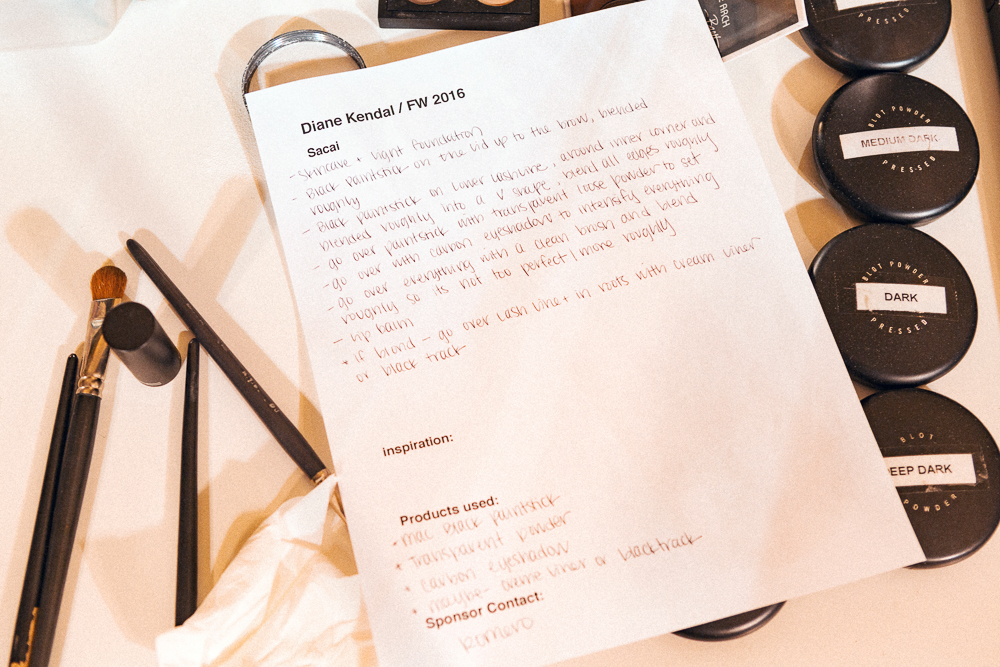 Diane Kendal / FW 2016
Sacai
- Skincare + light foundation
- Black paintstick on the lid up to the brow, blended
roughly
- Black paintstick on lower lashline, around inner corner and
blended roughly into a V shape, blend all edges roughly
- go over paintstick with transparent loose powder to set
- go over with carbon eyeshadow to intensify everything
- go over everything with a clean brush and blend
roughly so its not too perfect / more roughly
- lip balm
* if blond - go over lash line + in roots with cream liner
or black track
inspiration:
Products used:
* mac Black paintstick
* Transparent powder
* carbon eyeshadow
* maybe - creme liner or blacktrack
Sponsor Contact:
Romero
ARCH
PRESSED
BLOT POWDER
MEDIUM DARK
PRESSED
BLOT POWDER
DARK
PRESSED
BLOT
EEP DARK
POWDER